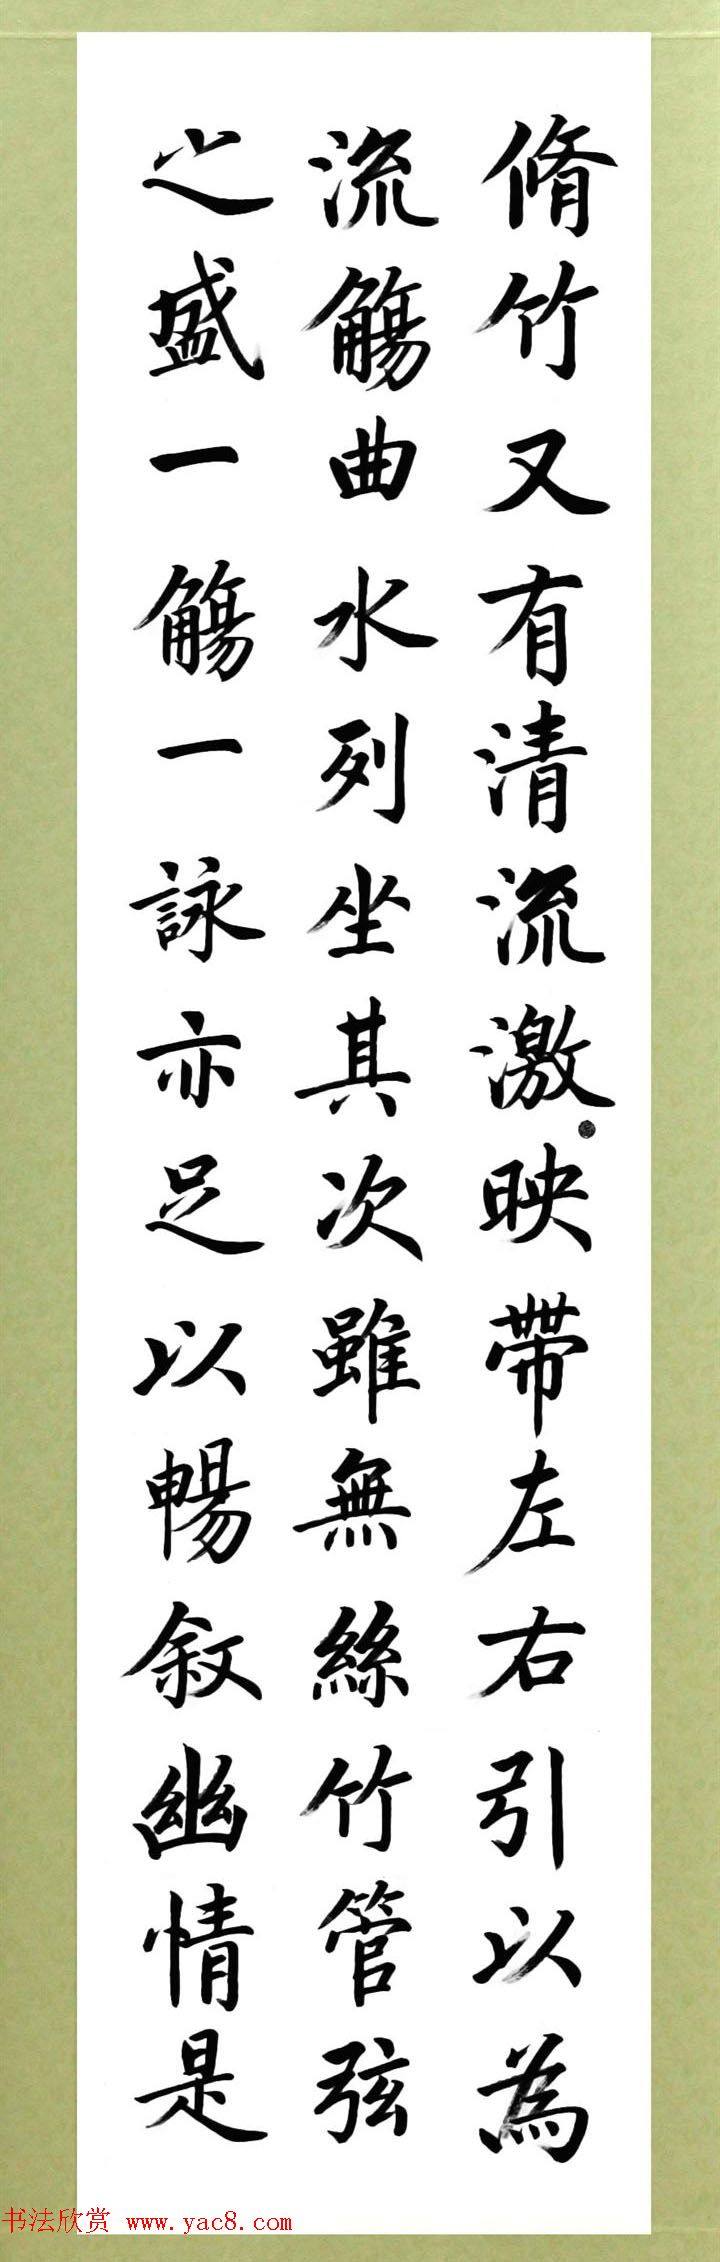 脩竹又有清流激映帶左右引以為
流觴曲水列坐其次雖無絲竹管弦
之盛一觴一詠亦足以暢叙幽情是
书法欣赏 www.yac8.com